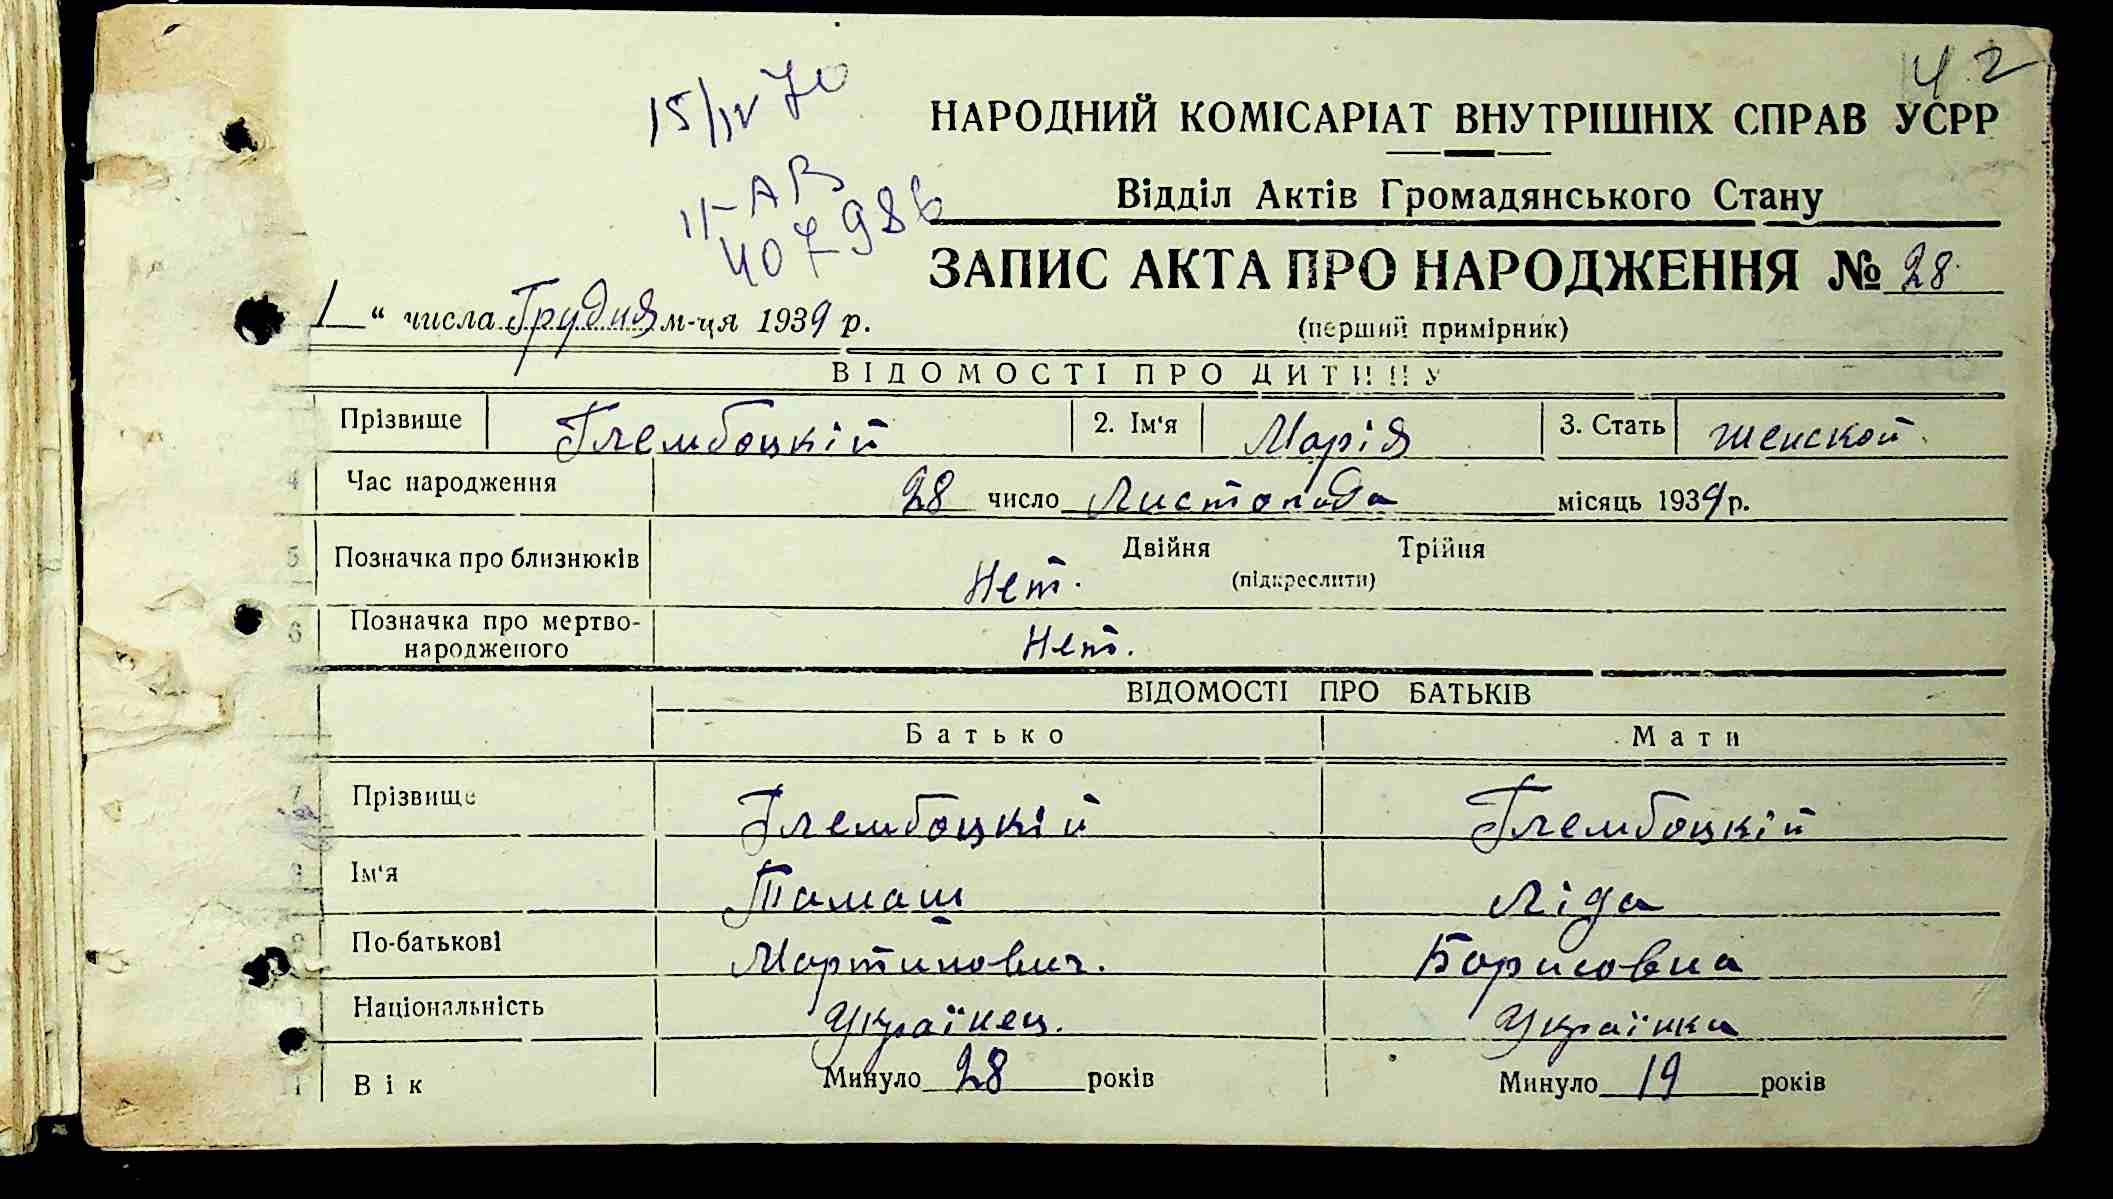 42
15/IV 70
НАРОДНИЙ КОМІСАРІАТ ВНУТРІШНІХ СПРАВ УСРР
II-АВ
Відділ Актів Громадянського Стану
407986
ЗАПИС АКТА ПРО НАРОДЖЕННЯ № 28
1 " числа Грудня м-ця 1939 р.
(перший примірник)
ВІДОМОСТІ ПРО ДИТИНУ
Прізвище Глембоцкій 2. Ім'я Марія 3. Стать женской
4 Час народження 28 число Листопада місяць 1939 р.
5 Позначка про близнюків Нет. Двійня Трійня
(підкреслити)
6 Позначка про мертво-
народженого Нет.
ВІДОМОСТІ ПРО БАТЬКІВ
Батько Мати
7 Прізвище Глембоцкій Глембоцкій
Ім'я Тамаш Ліда
По-батькові Мартинович. Борисовна
Національність Українец. Українка
11 Вік Минуло 28 років Минуло 19 років